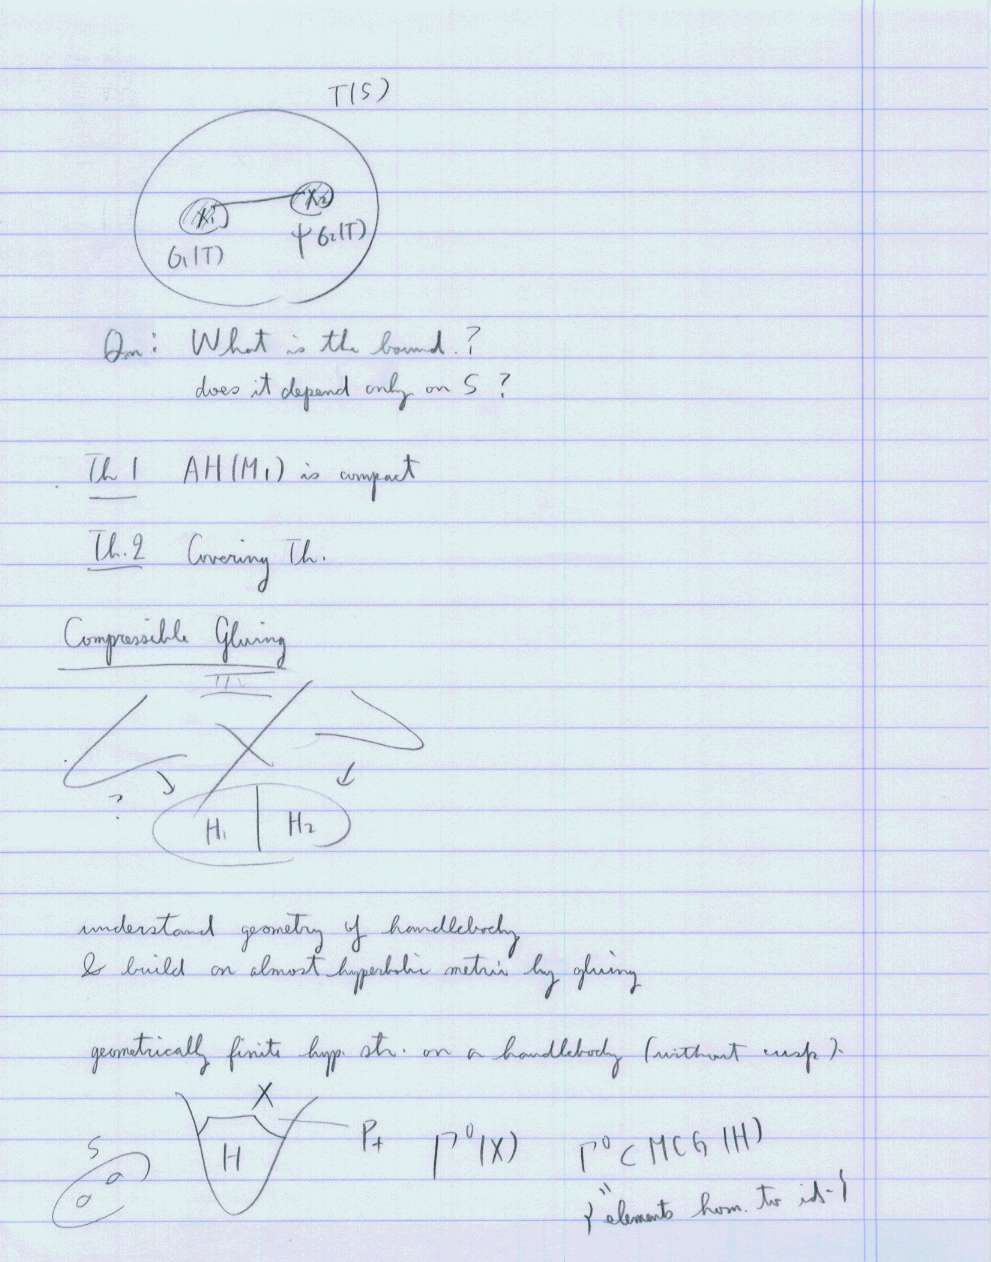 T(S)
X₁ X₂
σ₁(T) ψσ₂(T)
Qn: What is the bound?
does it depend only on S?
Th 1 AH(M₁) is compact
Th. 2 Covering Th.
Compressible Gluing
?
H₁ | H₂
understand geometry of handlebody
& build an almost hyperbolic metric by gluing
geometrically finite hyp. str. on a handlebody (without cusp).
X
S H P₊ Γ⁰(X) Γ⁰ ⊂ MCG(H)
{ elements hom. to id. }